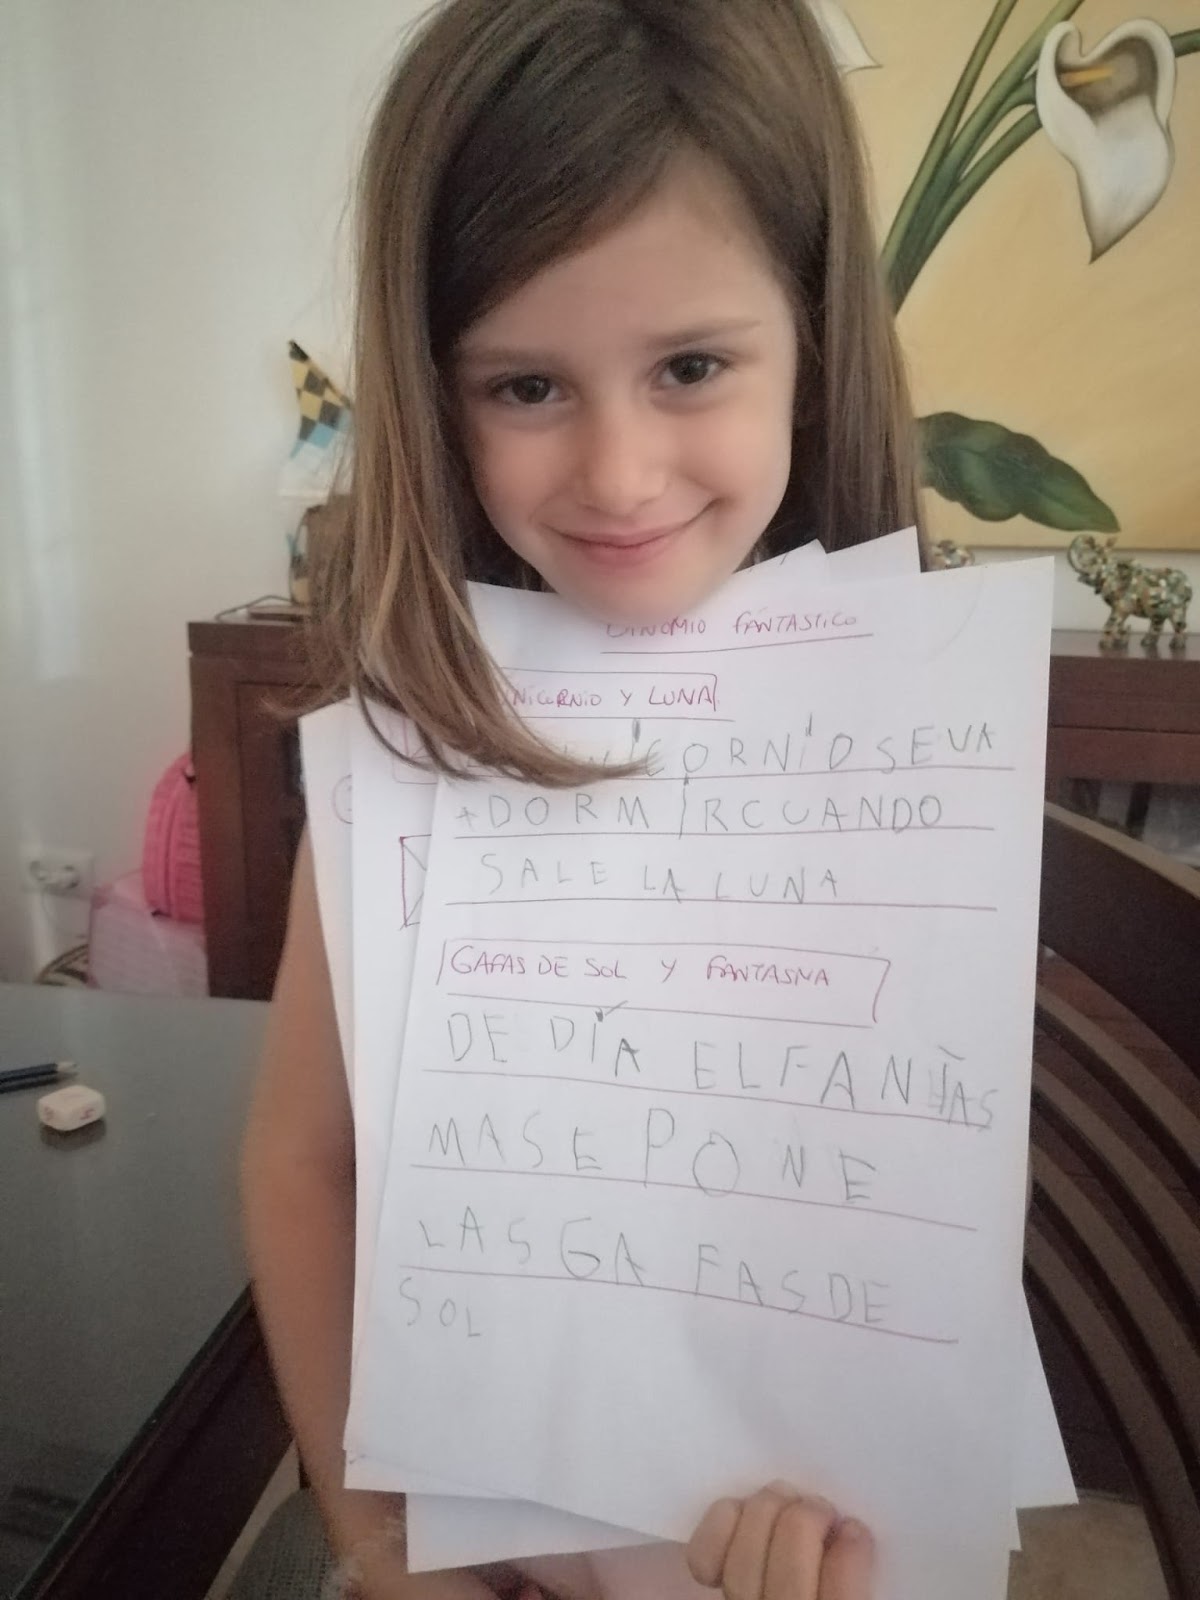 BINOMIO FANTASTICO
UNICORNIO Y LUNA
NICORNIO SE VA
A DORMIR CUANDO
SALE LA LUNA
GAFAS DE SOL Y FANTASMA
DE DÍA EL FANTAS
MA SE PONE
LAS GAFAS DE
SOL